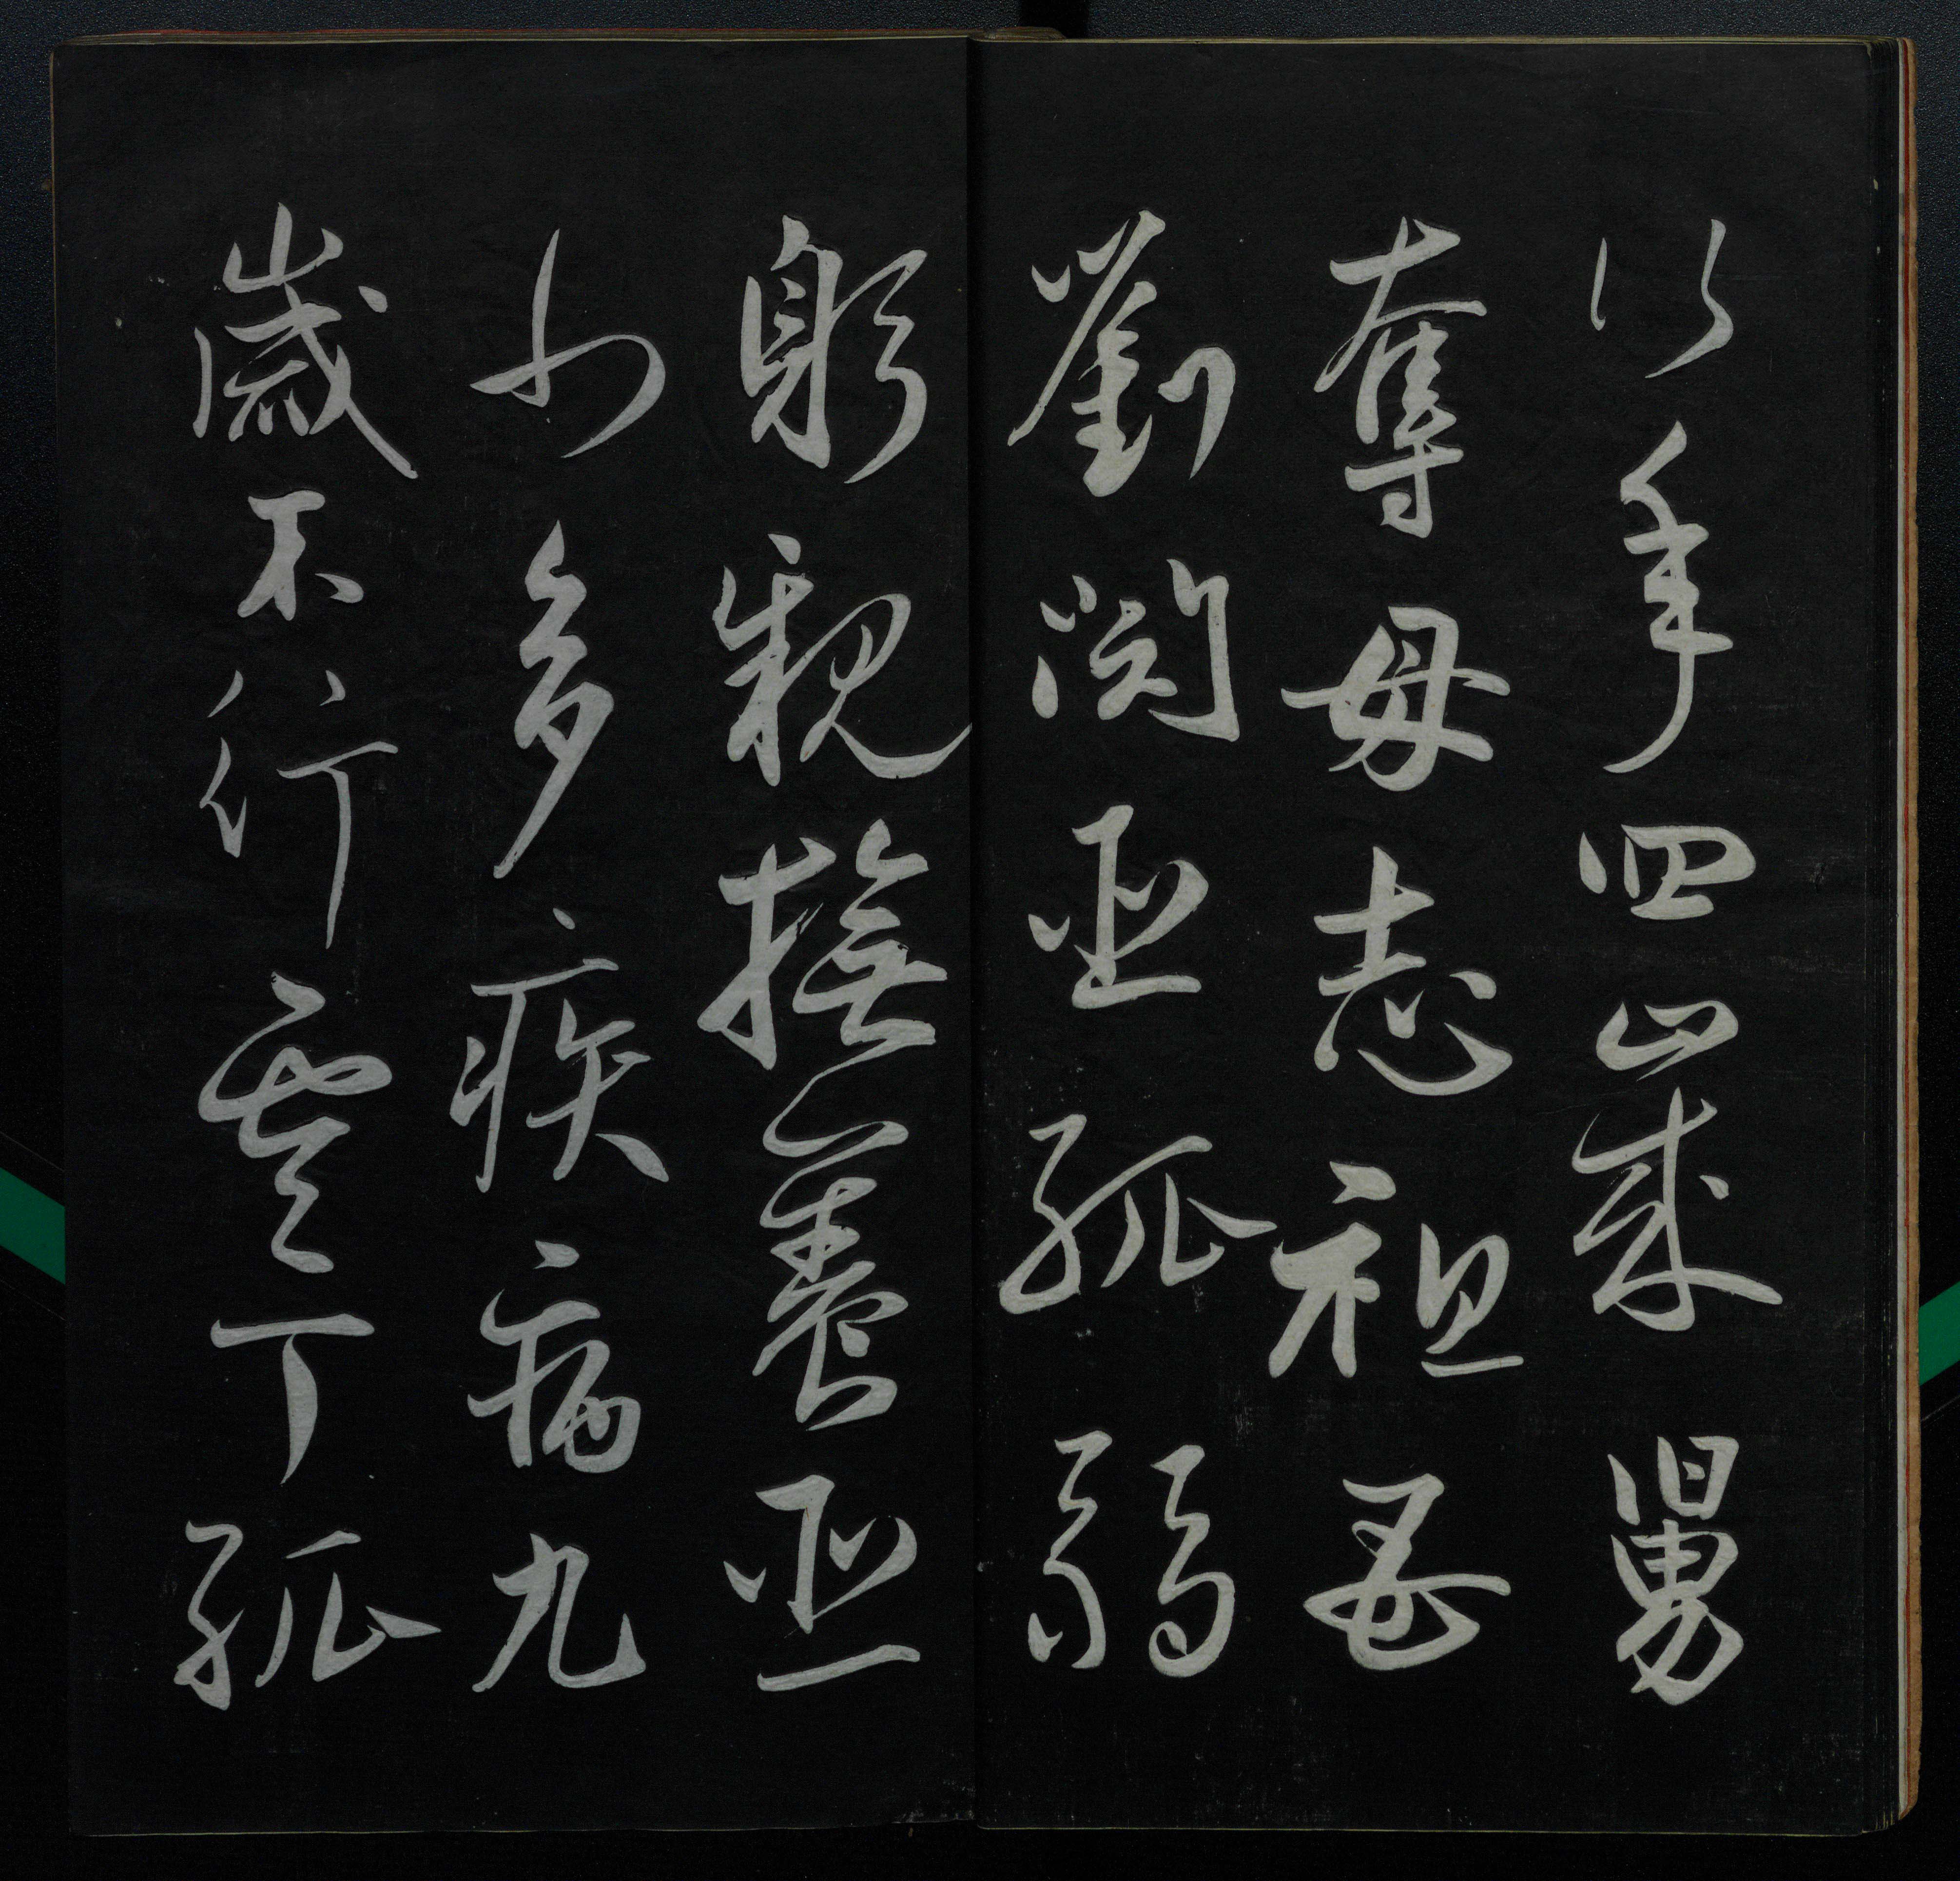 行年四歲舅
奪母志祖母
劉閔臣孤弱
躬親撫養臣
少多疾病九
歲不行零丁孤